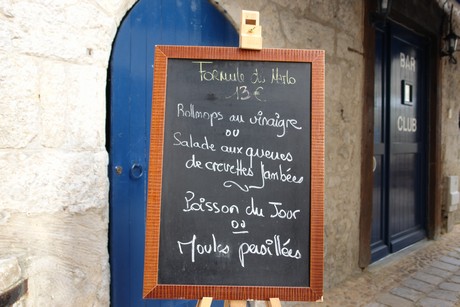 Formule du Matlo
13 €
Rollmops au vinaigre
ou
Salade aux queues
de crevettes flambées
Poisson du Jour
ou
Moules persillées
BAR
CLUB